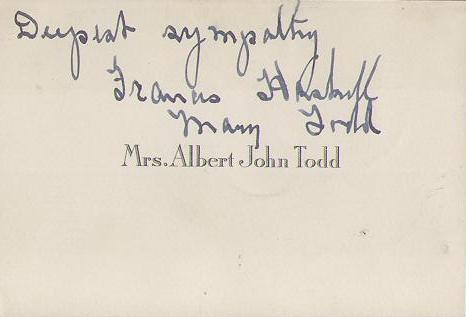 Deepest sympathy
Francis Haskell
Mary Todd
Mrs. Albert John Todd